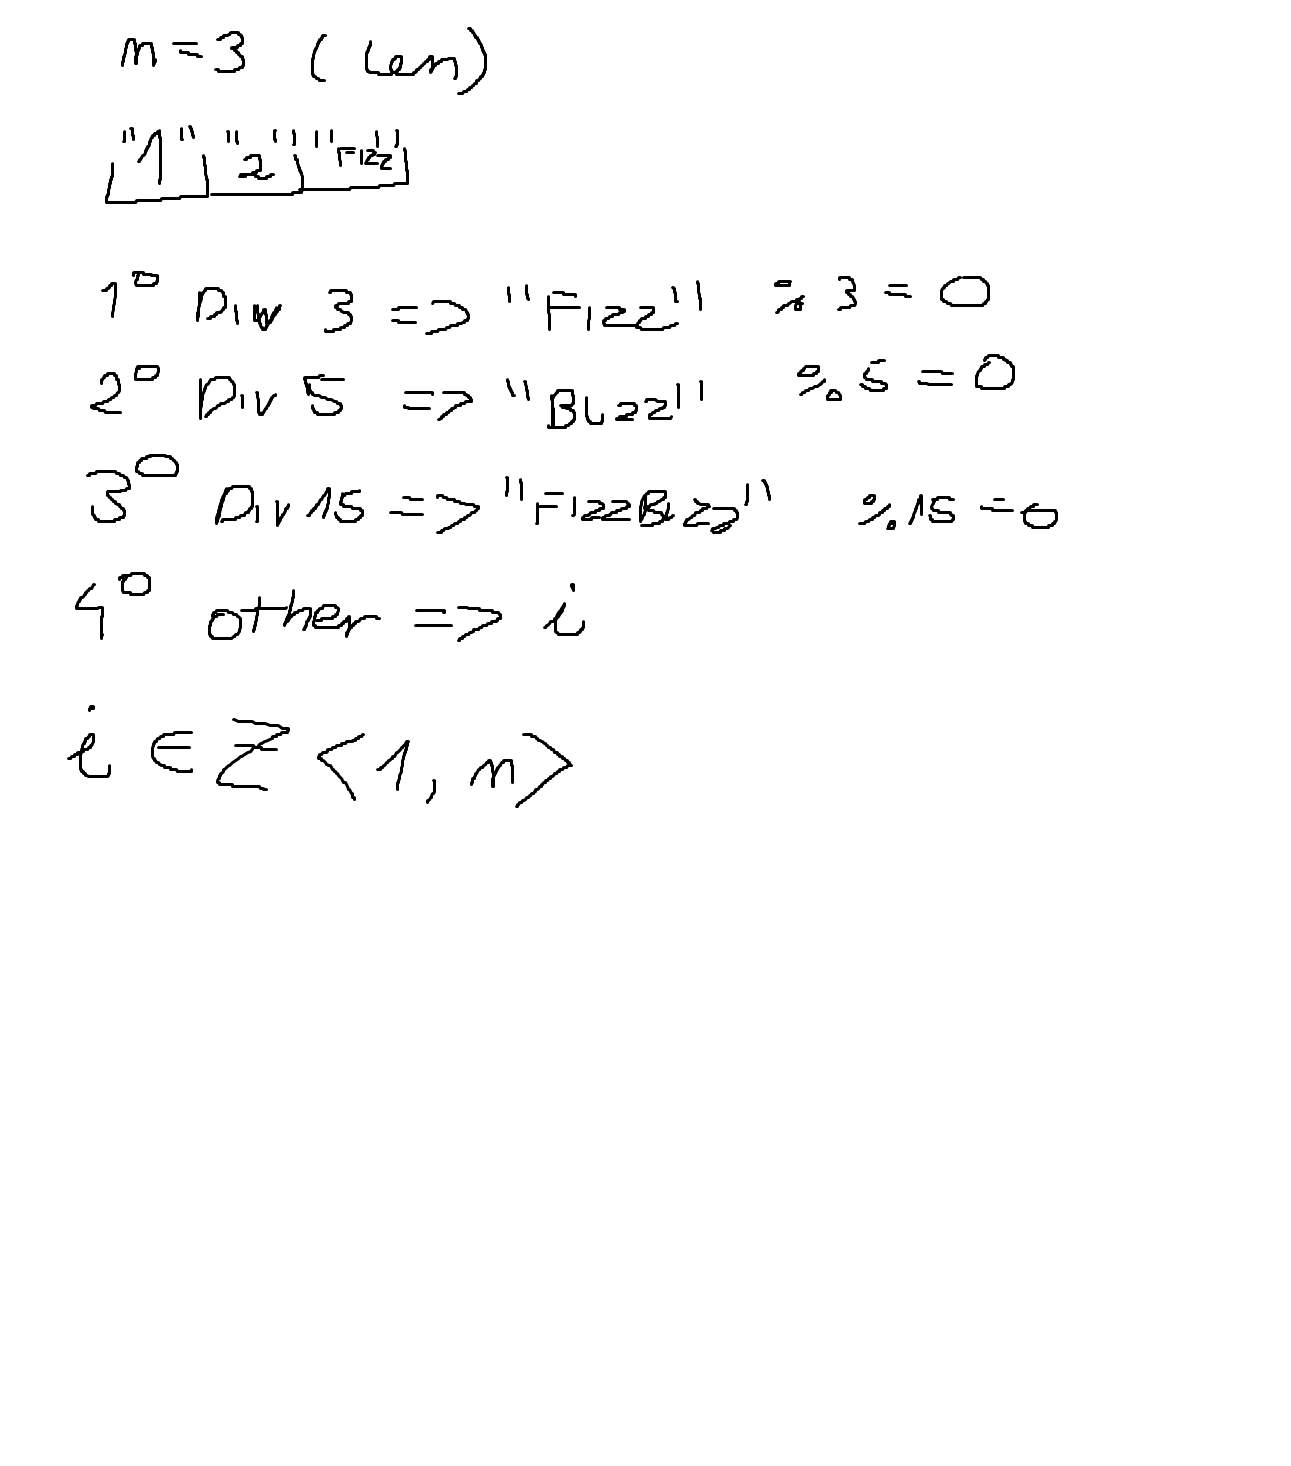 n = 3 (Len)
"1" "2" "Fizz"
1° Div 3 => "Fizz" % 3 = 0
2° Div 5 => "Buzz" % 5 = 0
3° Div 15 => "FizzBuzz" % 15 = 0
4° other => i
i ∈ Z <1, n>